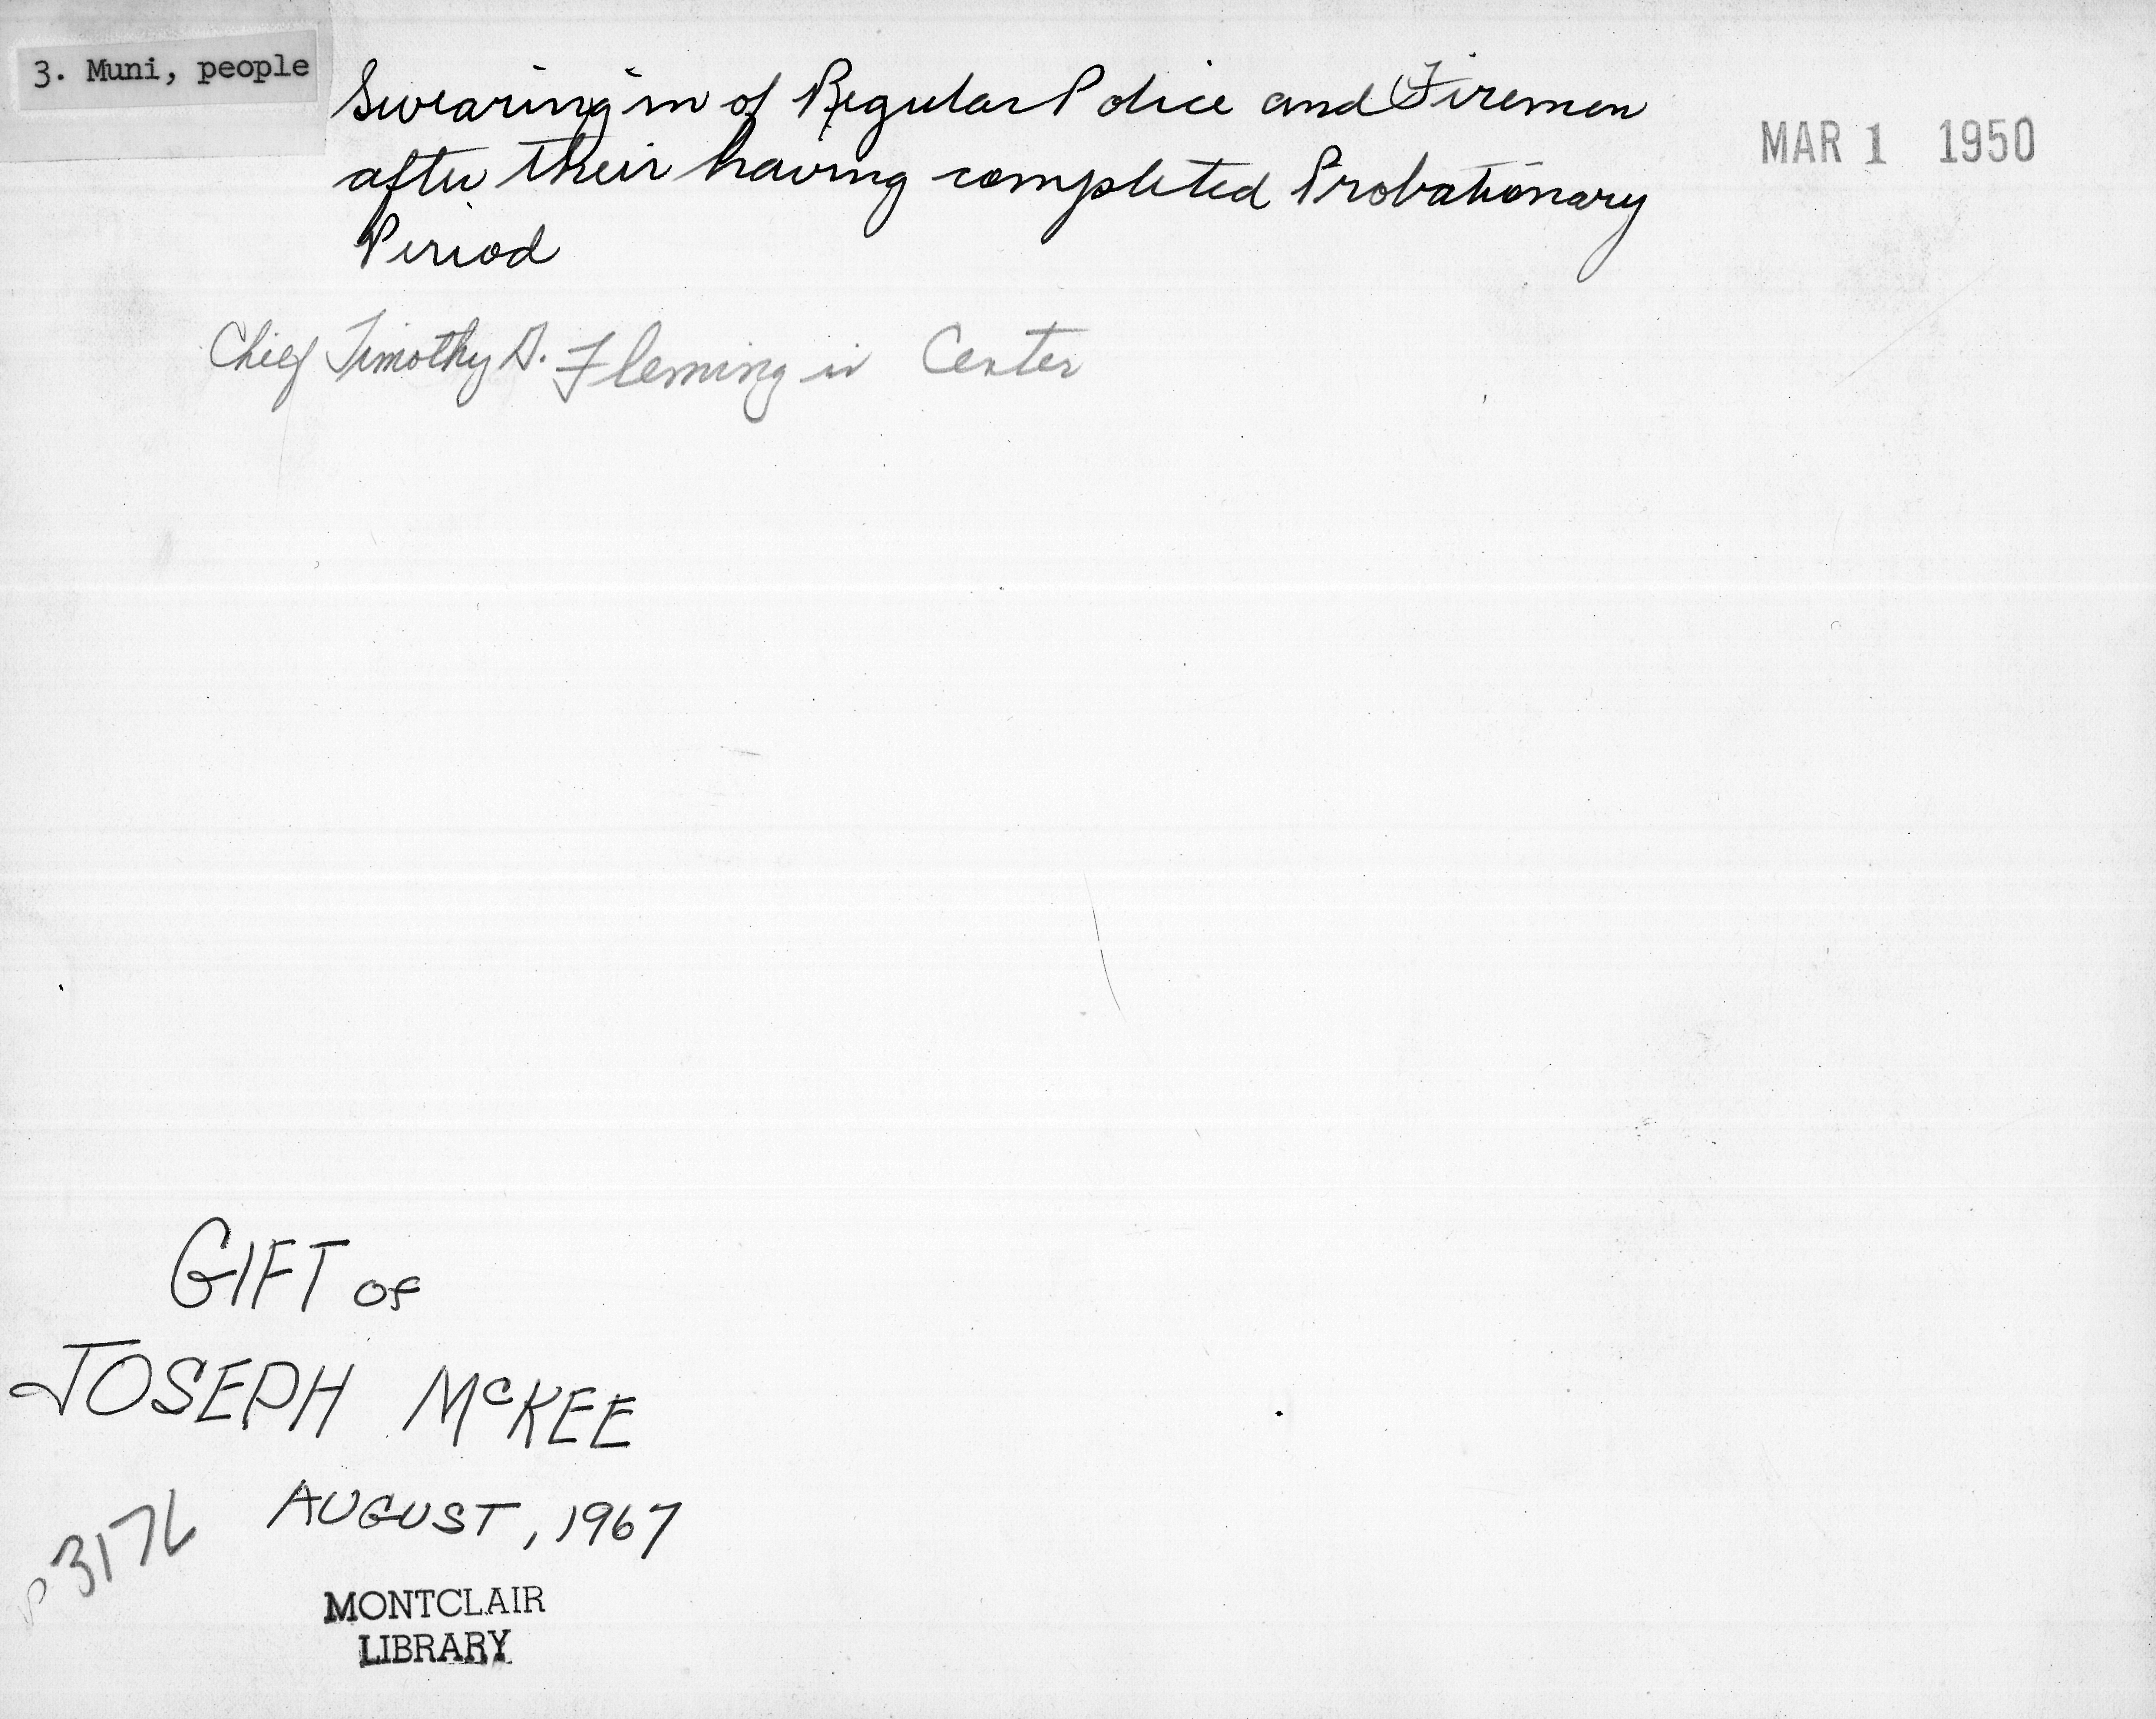 3. Muni, people
Swearing in of Regular Police and Firemen
after their having completed Probationary
Period
MAR 1 1950
Chief Timothy Fleming in Center
GIFT of
JOSEPH McKEE
AUGUST, 1967
MONTCLAIR
LIBRARY